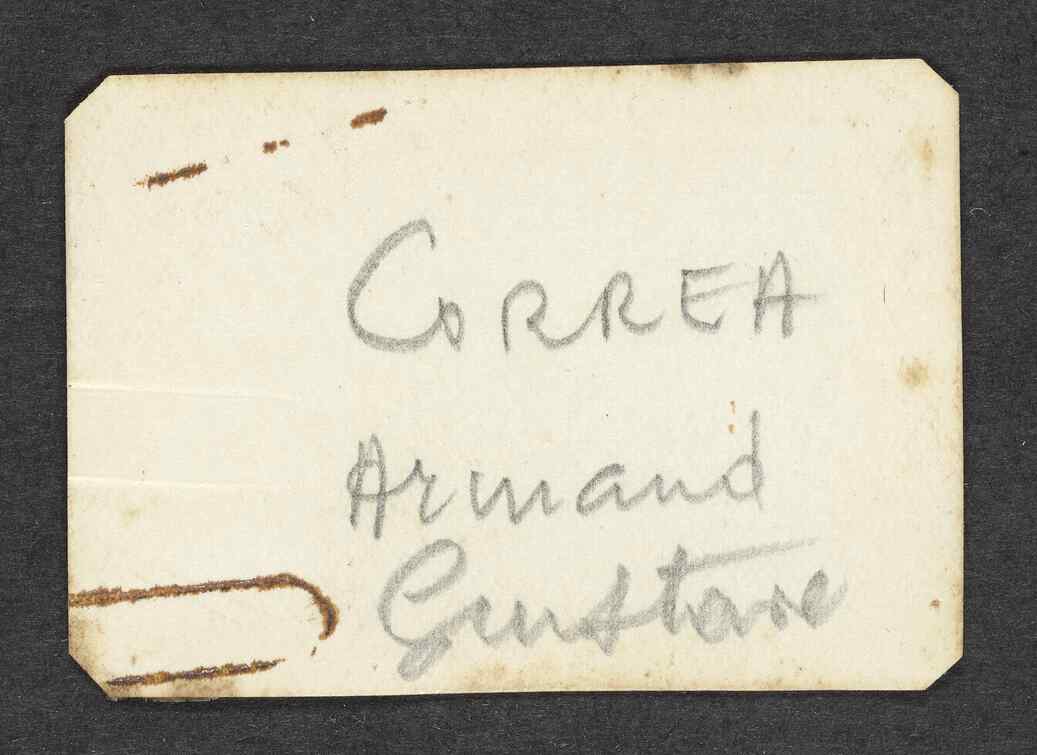 CORREA
Armand
Gustave